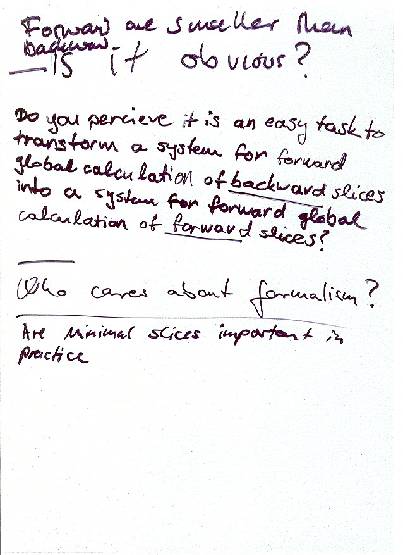 Forward are smaller than
Backward
— Is it obvious?
Do you percieve it is an easy task to
transform a system for forward
global calculation of backward slices
into a system for forward global
calculation of forward slices?
Who cares about formalism?
Are Minimal slices important in
practice